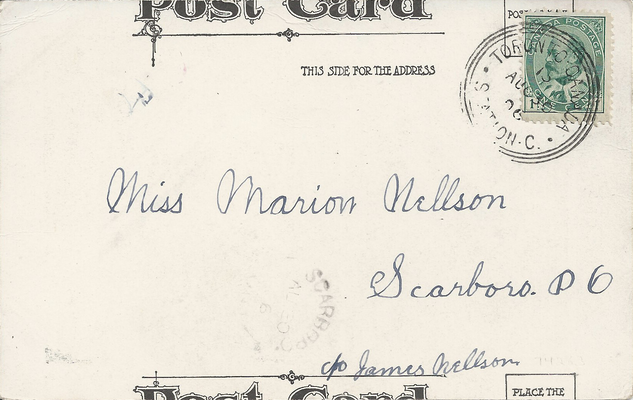 Post Card
THIS SIDE FOR THE ADDRESS
POST
CANADA POSTAGE
TORONTO CANADA
STATION.C.
Miss Marion Nellson
Scarboro. P O
SCARBORO
c/o James Nellson
Post Card
PLACE THE